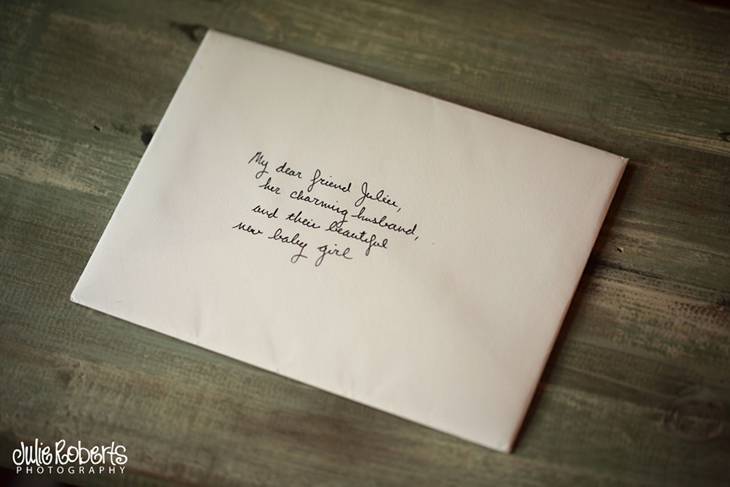 My dear friend Julie,
her charming husband,
and their beautiful
new baby girl
Julie Roberts
PHOTOGRAPHY